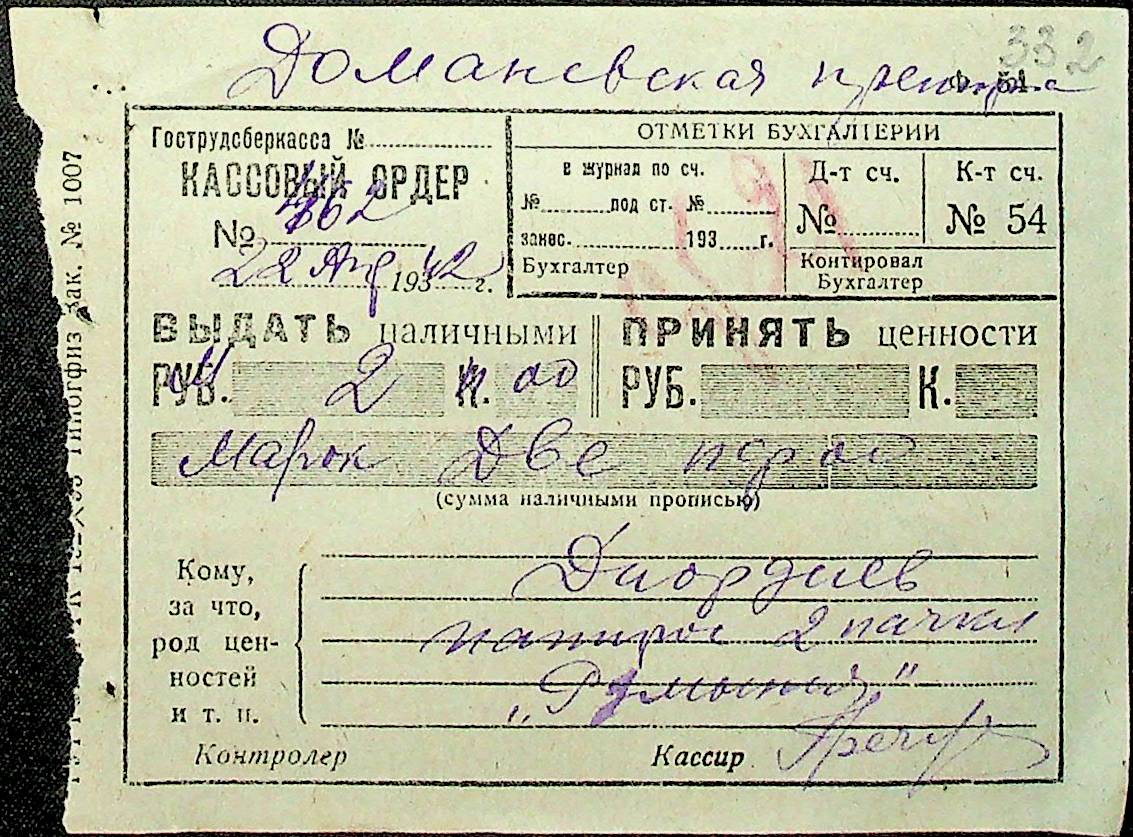 332
Доманевская претура
Ф. 51.
Гострудсберкасса №
КАССОВЫЙ ОРДЕР
№ 462
22 Авг 1942 г.
ОТМЕТКИ БУХГАЛТЕРИИ
в журнал по сч.
№ под ст. №
занес. 193 г.
Бухгалтер
Д-т сч.
№
К-т сч.
№ 54
Контировал
Бухгалтер
ВЫДАТЬ наличными
РУБ. 2 К. 00
ПРИНЯТЬ ценности
РУБ. К.
Марок Две
(сумма наличными прописью)
Кому,
за что,
род цен-
ностей
и т. п.
Диордиев
папирос 2 пачки
„Румыния"
Контролер
Кассир
Зак. № 1007